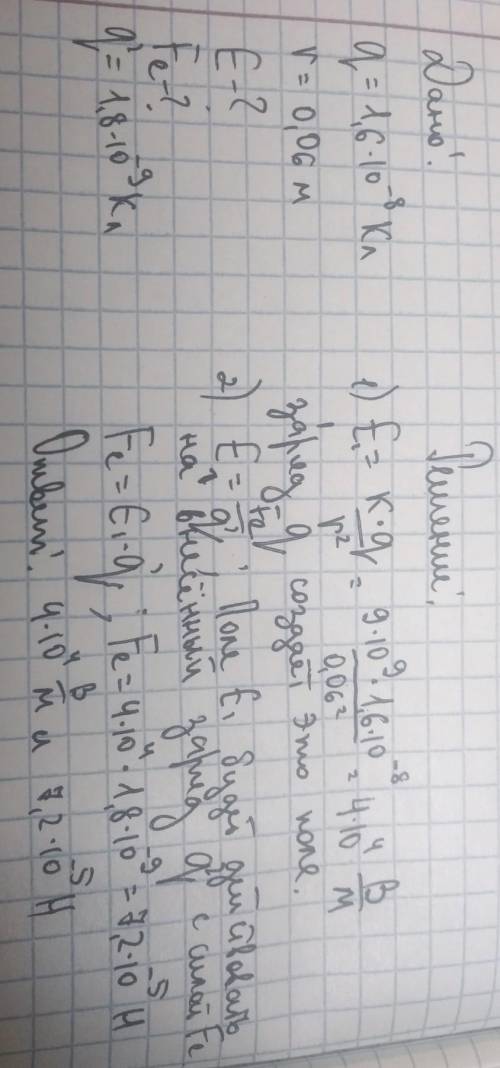 Дано:
q = 1,6·10⁻⁸ Кл
r = 0,06 м
E - ?
Fe - ?
q' = 1,8·10⁻⁹ Кл
Решение:
1) E₁ = K·q/r² = 9·10⁹·1,6·10⁻⁸/0,06² = 4·10⁴ В/м
заряд q создаёт это поле.
2) E = Fe/q'; Поле E₁ будет действовать
на внесённый заряд q' с силой Fe
Fe = E₁·q'; Fe = 4·10⁴·1,8·10⁻⁹ = 7,2·10⁻⁵ Н
Ответ: 4·10⁴ В/м и 7,2·10⁻⁵ Н